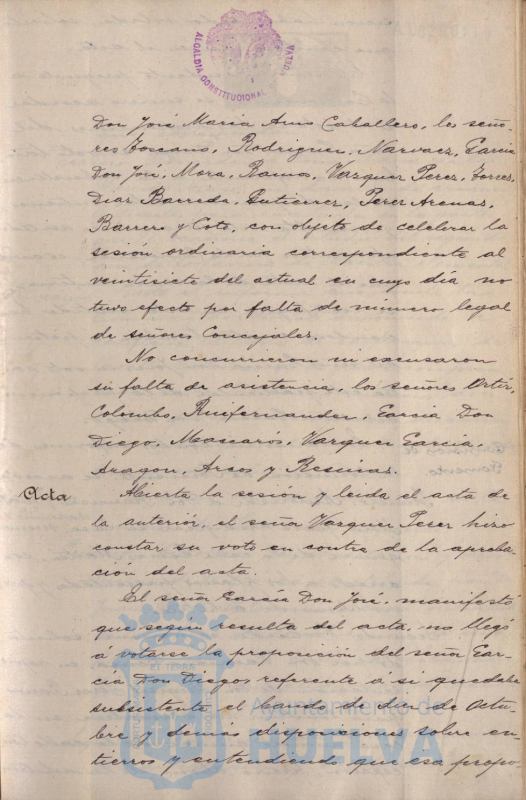 ALCALDIA CONSTITUCIONAL
Don José María Amo Caballero, los seño-
res Toscano, Rodriguez, Narvaez, Garcia
Don José, Mora, Ramos, Vazquez Perez, Torres,
Diaz Barreda, Gutierrez, Perez Arenas,
Barrero y Coto, con objeto de celebrar la
sesión ordinaria correspondiente al
veintisiete del actual en cuyo día no
tuvo efecto por falta de número legal
de señores Concejales.
No concurrieron ni excusaron
su falta de asistencia, los señores Ortiz,
Colombo, Ruifernandez, Garcia Don
Diego, Mascarós, Vazquez Garcia,
Aragon, Arcos y Resinas.
Acta
Abierta la sesión y leida el acta de
la anterior, el señor Vazquez Perez hizo
constar su voto en contra de la aproba-
ción del acta.
El señor García Don José, manifestó
que según resulta del acta, no llegó
á votarse la proposición del señor Gar-
cía Don Diego referente á si quedaba
subsistente el bando de diez de Octu-
bre y demás disposiciones sobre en-
tierros y entendiendo que esa propo-
Ayuntamiento de
HUELVA